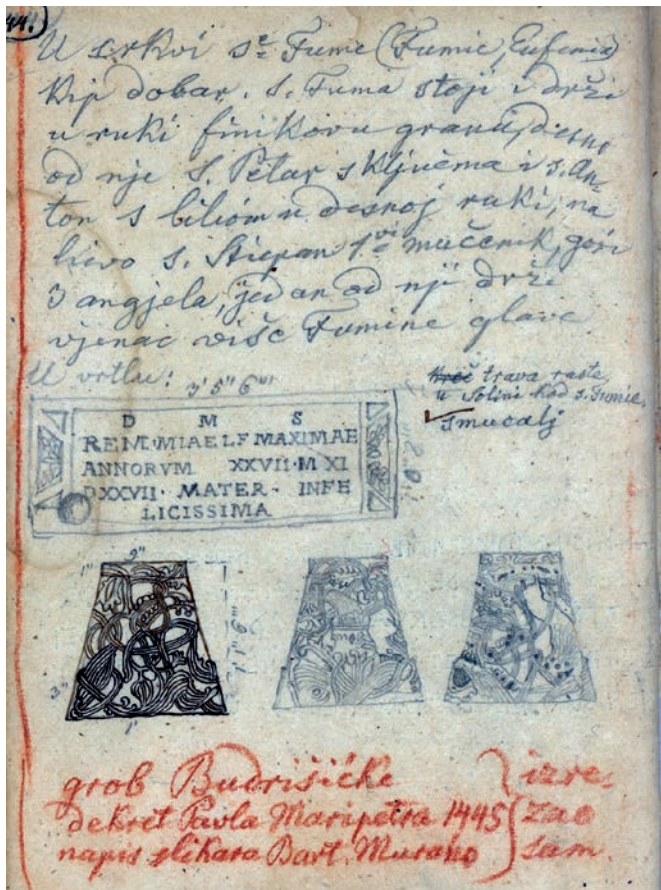 44.
U crkvi se Fume (Fumie, Eufemia)
kip dobar. S. Fuma stoji i drži
u ruki finikovu granu, desno
od nje S. Petar s ključema i s. An-
ton s biliom u desnoj ruki, na
livo s. Stiepan 1vi mučenik, gori
3 angjela, jedan od nji drži
vjenac više Fumine glave
U vrtlu: 3' 5" 6'"
trava raste
u Solini kod s. Fumie,
smucalj
D M S
REMMIAELFMAXIMAE
ANNORVM XXVII·M XI
DXXVII· MATER· INFE
LICISSIMA
9"
1"
3"
1"
grob Budrišićke
dekret Pavla Maripetra 1445
napis slikara Bart. Murano
izre-
zao
sam.